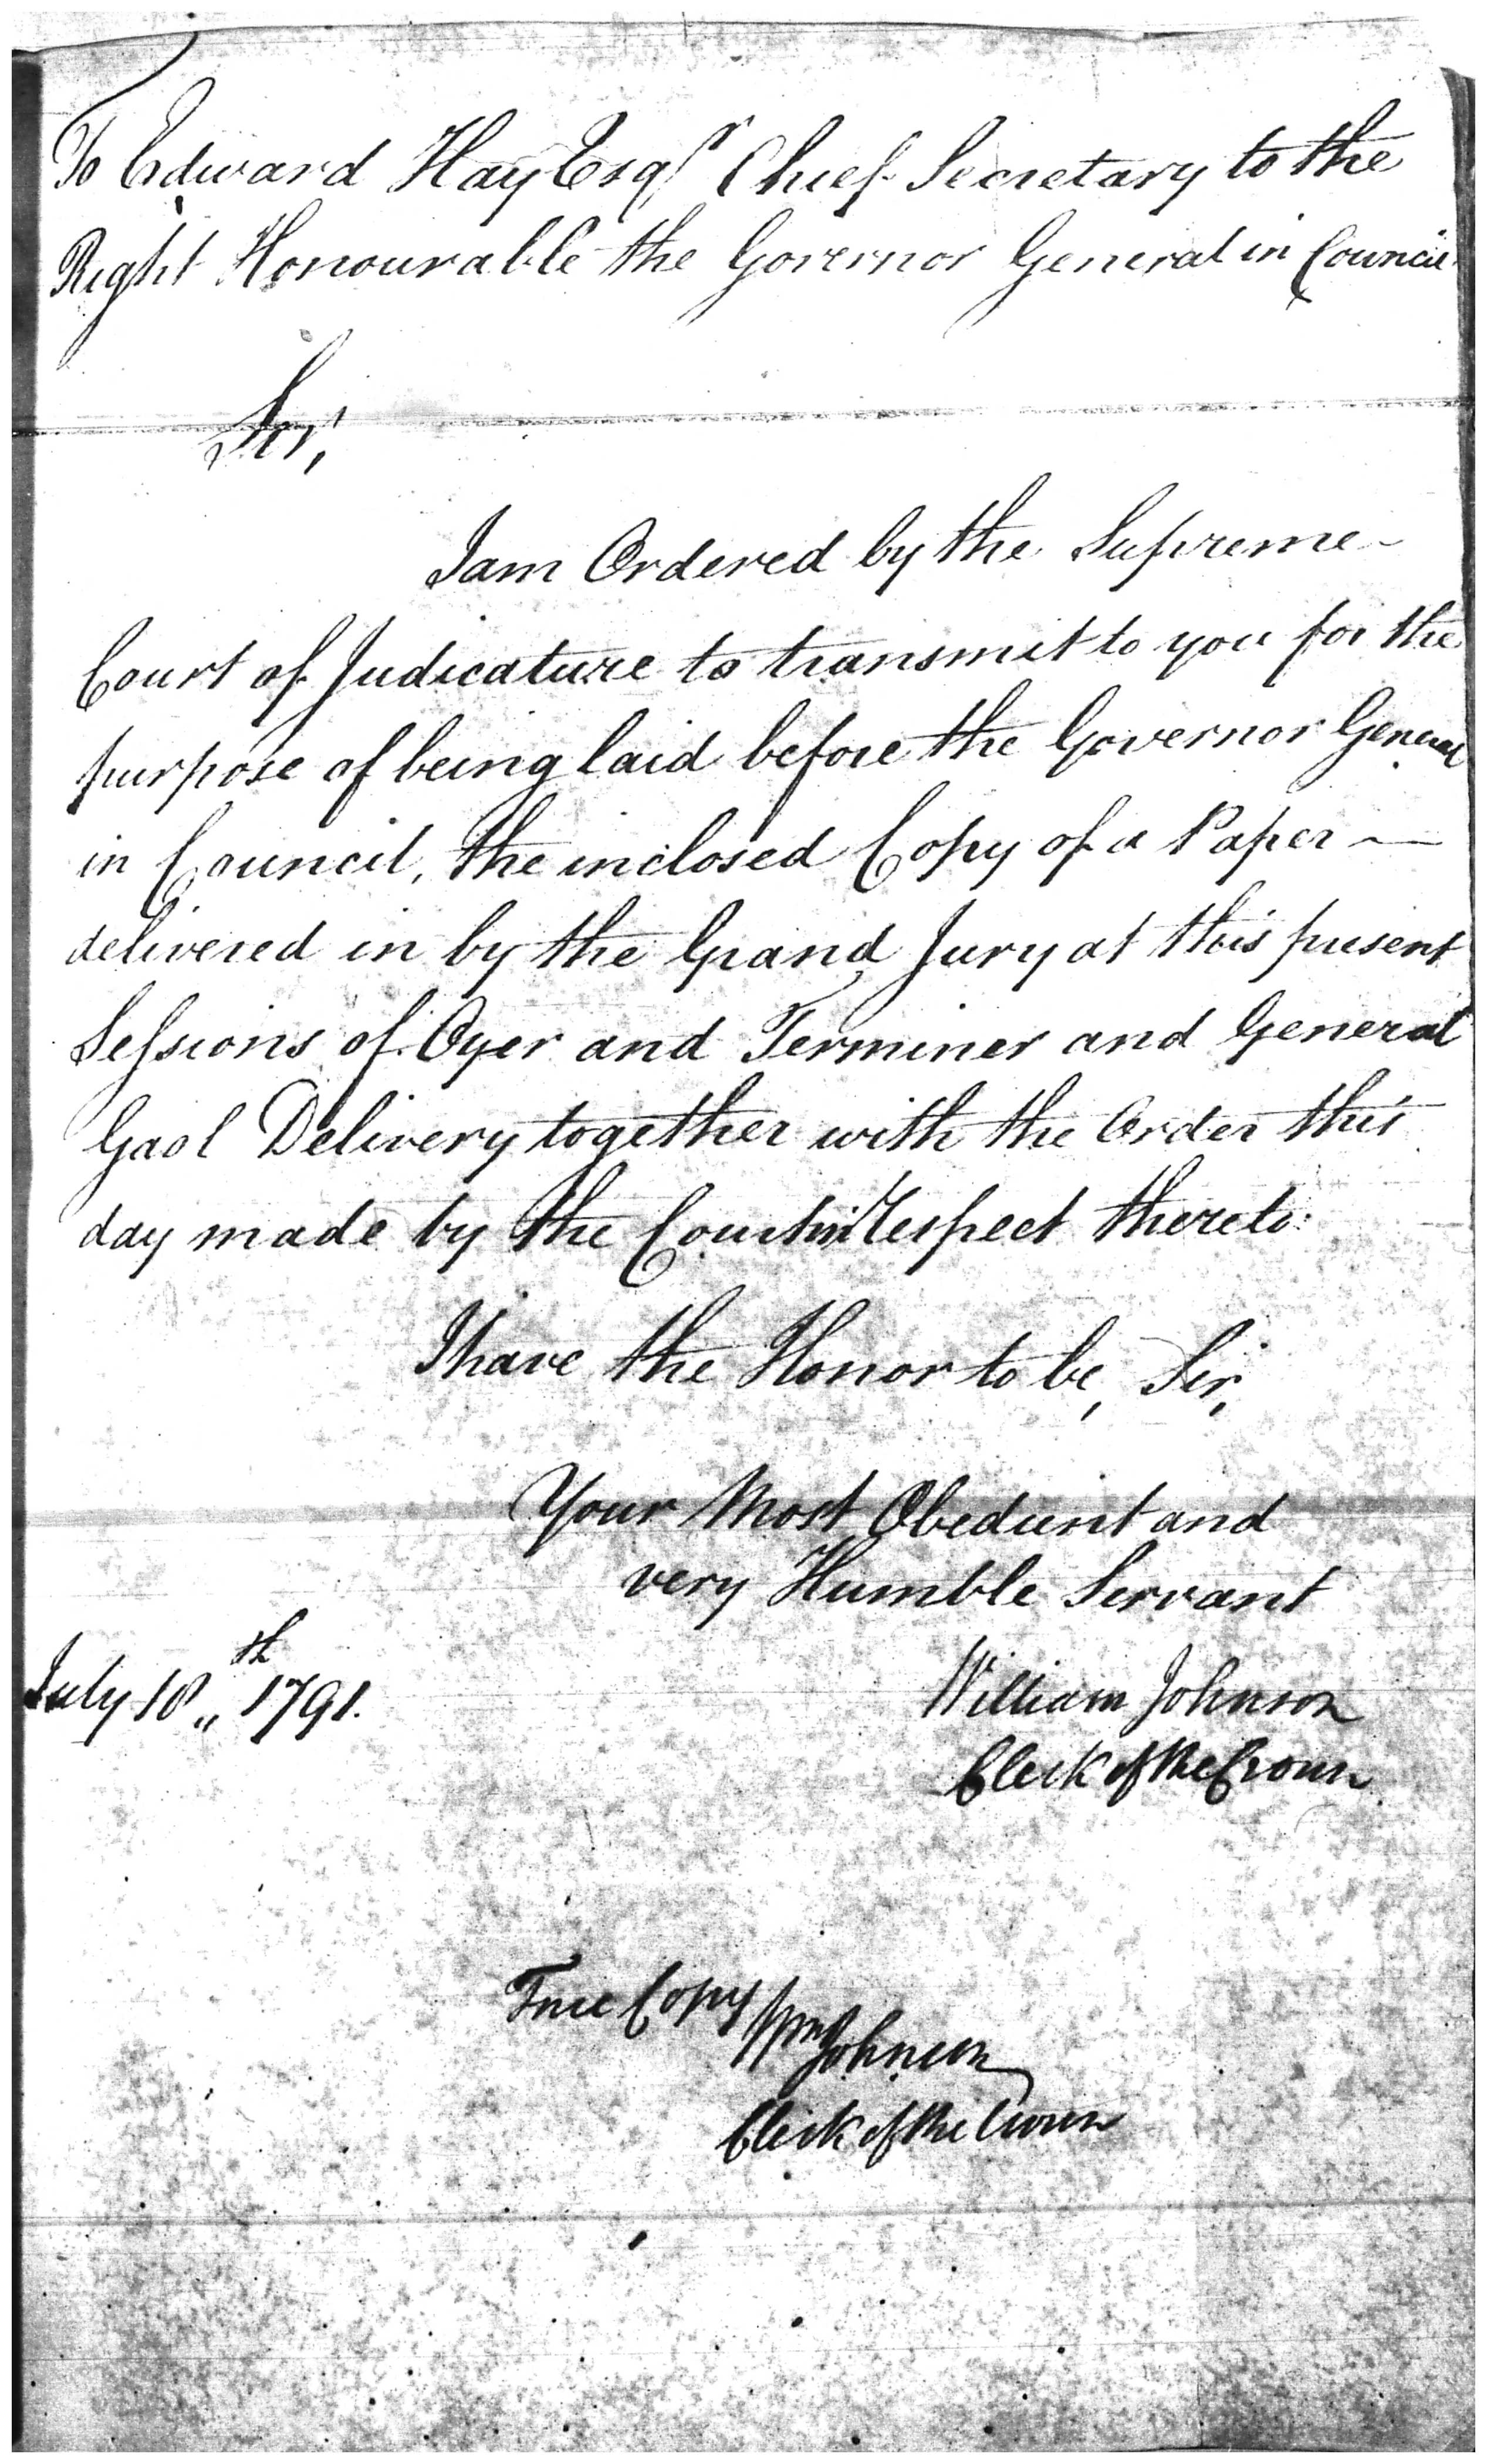 To Edward Hay Esqr Chief Secretary to the
Right Honourable the Governor General in Council
Sir,
I am Ordered by the Supreme
Court of Judicature to transmit to you for the
purpose of being laid before the Governor General
in Council, the inclosed Copy of a Paper —
delivered in by the Grand Jury at this present
Sessions of Oyer and Terminer and General
Gaol Delivery together with the Order this
day made by the Court in respect thereto.
I have the Honor to be, Sir,
Your Most Obedient and
very Humble Servant
July 18th 1791.
William Johnson
Clerk of the Crown
True Copy
Wm Johnson
Clerk of the Crown